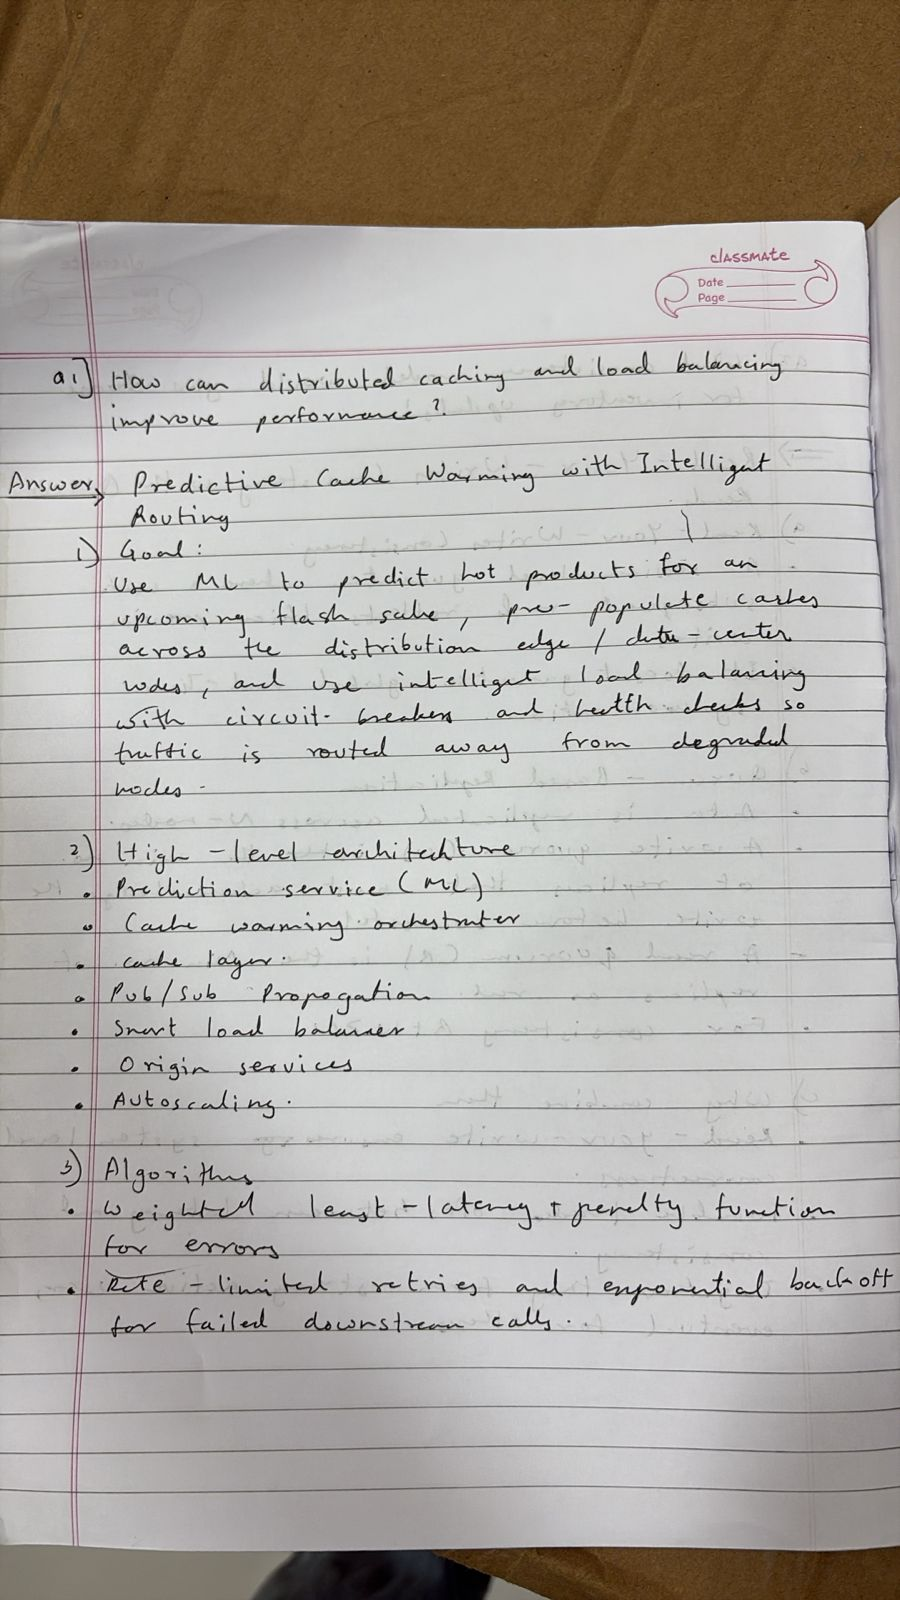 classmate
Date
Page
a1] How can distributed caching and load balancing
improve performance?
Answer Predictive Cache Warming with Intelligent
Routing
1) Goal:
Use ML to predict hot products for an
upcoming flash sale, pre-populate caches
across the distribution edge / data-center
nodes, and use intelligent load balancing
with circuit-breakers and health checks so
traffic is routed away from degraded
nodes.
2) High-level architechture
• Prediction service (ML)
• Cache warming orchestrater
• cache layer.
• Pub/Sub Propogation
• Smart load balancer
• Origin services
• Autoscaling.
3) Algorithms
• Weighted least-latency + penalty function
for errors
• Rate-limited retries and exponential backoff
for failed downstream calls.